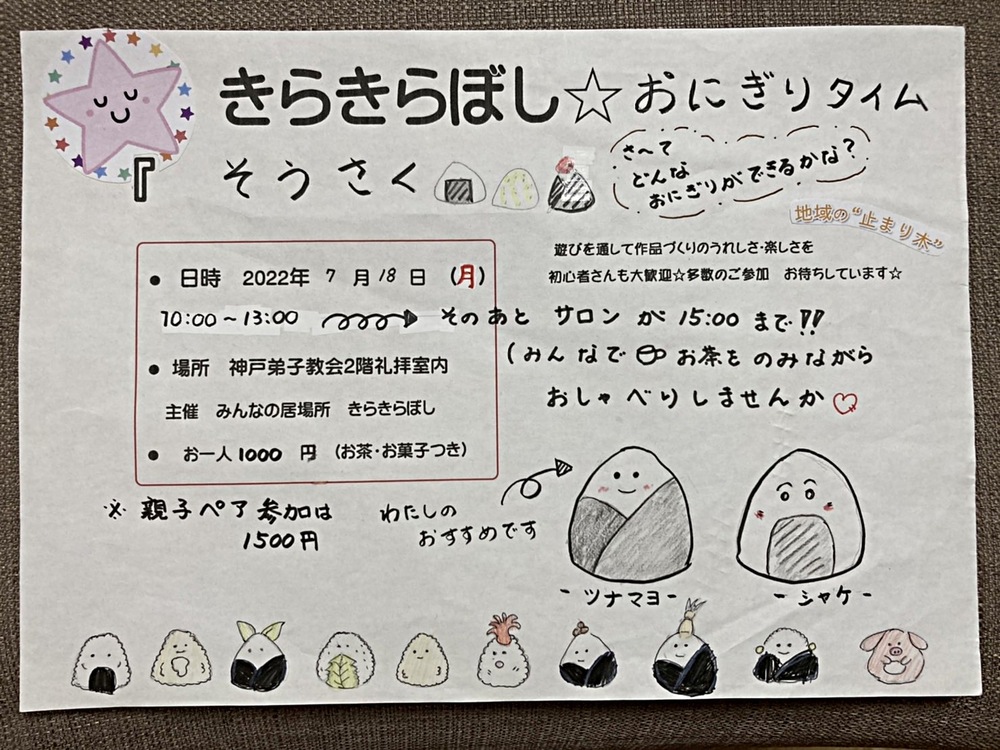 きらきらぼし☆おにぎりタイム
『そうさく
さ〜て
どんな
おにぎりができるかな?
地域の“止まり木”
遊びを通して作品づくりのうれしさ・楽しさを
初心者さんも大歓迎☆多数のご参加　お待ちしています☆
● 日時　2022年 7月18日 (月)
10:00～13:00 そのあと サロン が 15:00 まで!!
(みんなで お茶をのみながら
おしゃべりしませんか
● 場所　神戸弟子教会2階礼拝室内
主催　みんなの居場所　きらきらぼし
● お一人1000円 (お茶・お菓子つき)
※ 親子ペア参加は
1500円
わたしの
おすすめです
-ツナマヨ-
-シャケ-